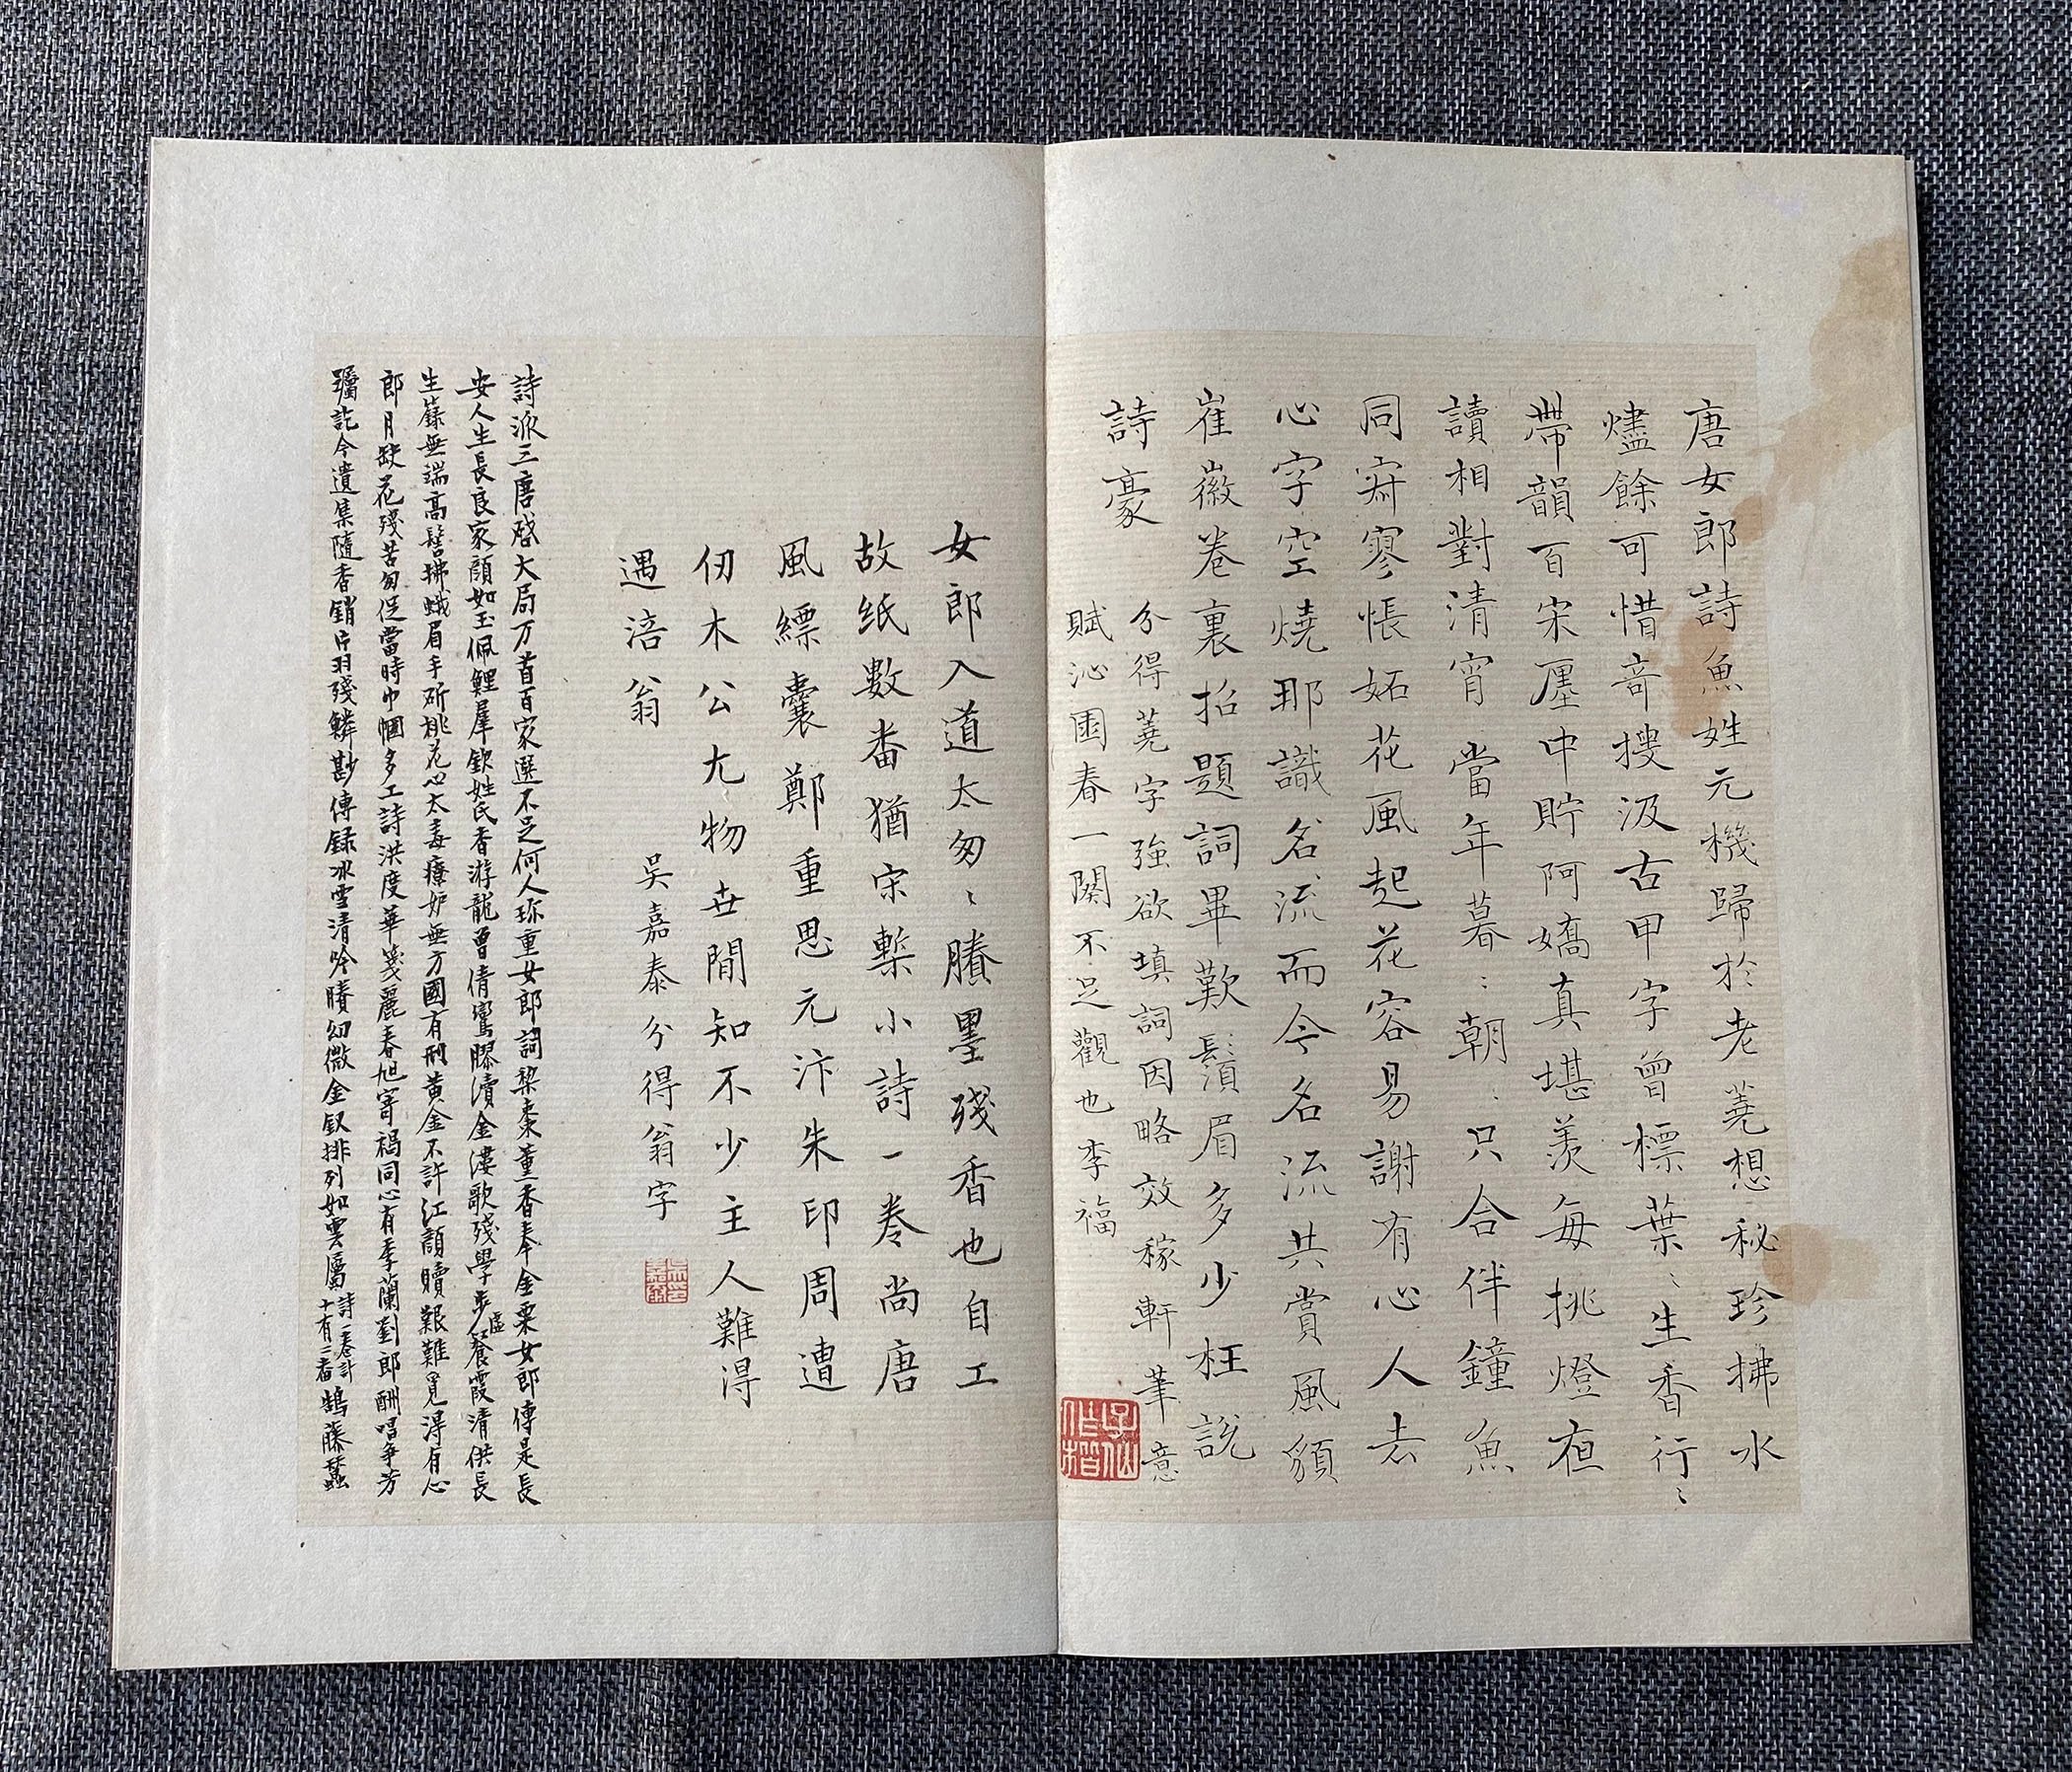 唐女郎詩魚姓元機歸於老蕘想秘珍拂水
燼餘可惜奇搜汲古甲字曾標葉〻生香行〻
帶韻百宋廛中貯阿嬌真堪羨每挑燈夜
讀相對清宵 當年暮〻朝〻只合伴鐘魚
同寂寥悵妬花風起花容易謝有心人去
心字空燒耶識名流而今名流共賞風貌
崔徽卷裏招題詞畢歎鬚眉多少枉說
詩豪
分得蕘字強欲填詞因略效稼軒筆意
賦沁園春一闋不足觀也李福
女郎入道太匆〻賸墨殘香也自工
故紙數番猶宋槧小詩一卷尚唐
風縹囊鄭重思元汴朱印周遭
仞木公尤物世間知不少主人難得
遇涪翁
吳嘉泰分得翁字
詩派三唐啓大局万首百家選不足何人珎重女郎詞棃棗董香奉金粟女郎傳是長
安人生長良家顔如玉佩鯉羣欽姓氏香游龍曾倩鸞膠續金漊歌殘學步虛餐霞清供長
生籙無端高髻拂蛾眉手斫桃花心太毒療妒無方國有刑黄金不許江顔贖艱難覓得有心
郎月缺花殘苦匆促當時巾幗多工詩洪度華箋麗春旭寄禍同心有季蘭劉郎酬唱爭芳
躅訖今遺集隨香銷片羽殘鱗尠傳録冰雪清吟賸幼微金釵排列如雲屬詩一卷計十有二番鵠藤蠶